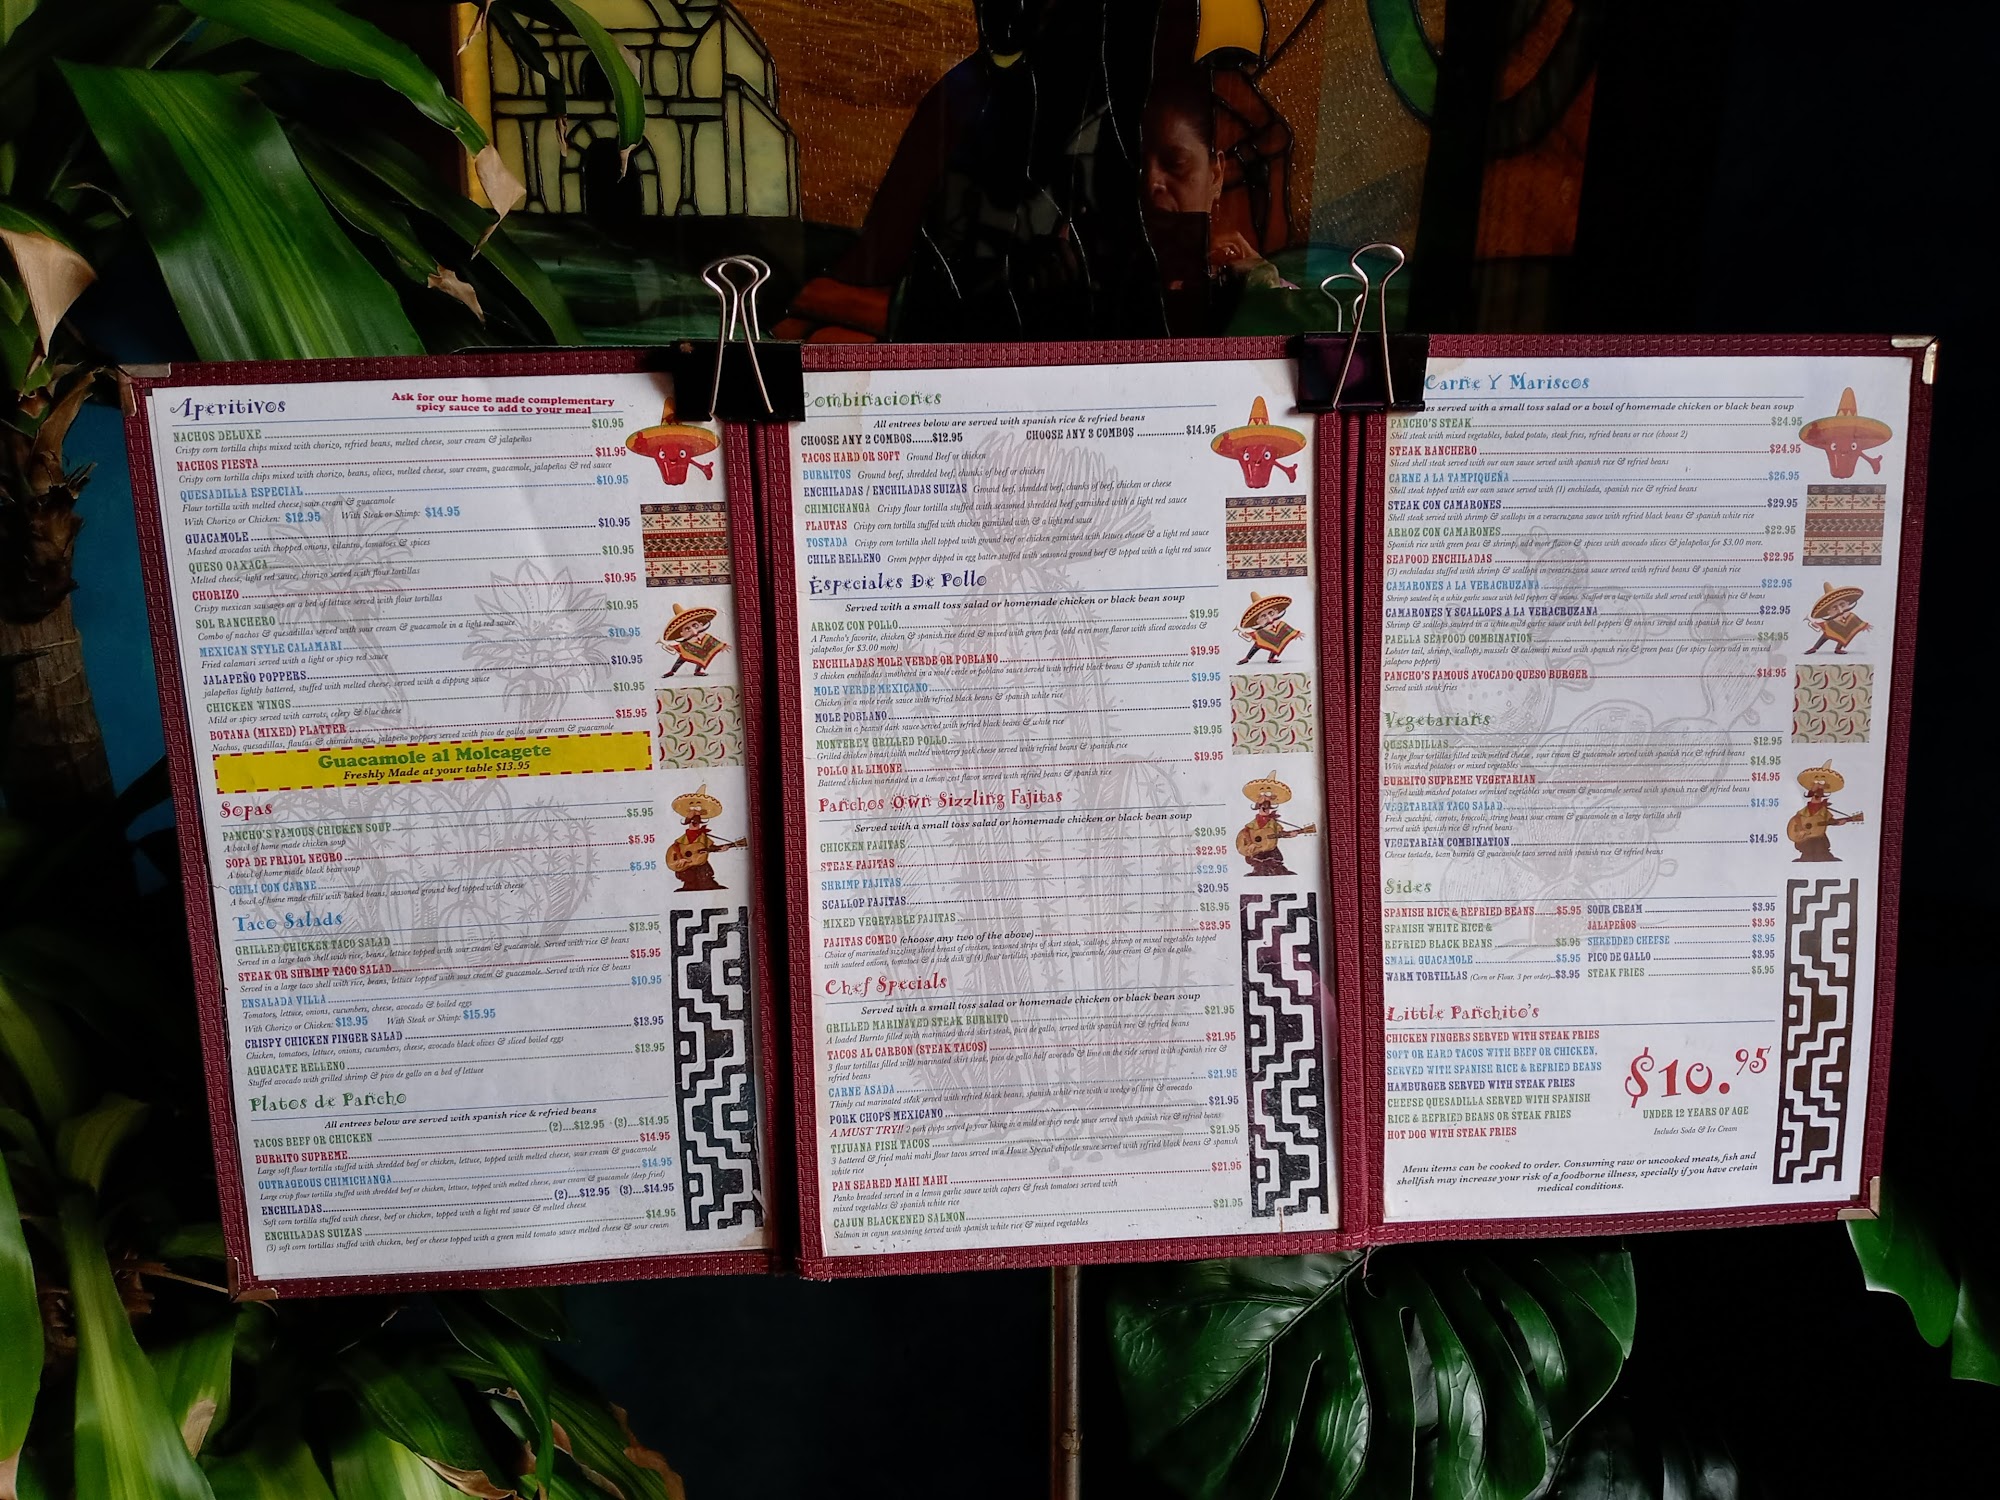 Aperitivos
Ask for our home made complementary
spicy sauce to add to your meal
NACHOS DELUXE $10.95
Crispy corn tortilla chips mixed with chorizo, refried beans, melted cheese, sour cream & jalapeños
NACHOS FIESTA $11.95
Crispy corn tortilla chips mixed with chorizo, beans, olives, melted cheese, sour cream, guacamole, jalapeños & red sauce
QUESADILLA ESPECIAL $10.95
Flour tortilla with melted cheese, sour cream & guacamole
With Chorizo or Chicken: $12.95 With Steak or Shrimp: $14.95
GUACAMOLE $10.95
Mashed avocados with chopped onions, cilantro, tomatoes & spices
QUESO OAXACA $10.95
Melted cheese, light red sauce, chorizo served with flour tortillas
CHORIZO $10.95
Crispy mexican sausages on a bed of lettuce served with flour tortillas
SOL RANCHERO $10.95
Combo of nachos & quesadillas served with sour cream & guacamole in a light red sauce
MEXICAN STYLE CALAMARI $10.95
Fried calamari served with a light or spicy red sauce
JALAPEÑO POPPERS $10.95
jalapeños lightly battered, stuffed with melted cheese, served with a dipping sauce
CHICKEN WINGS $10.95
Mild or spicy served with carrots, celery & blue cheese
BOTANA (MIXED) PLATTER $15.95
Nachos, quesadillas, flautas & chimichangas, jalapeño poppers served with pico de gallo, sour cream & guacamole
Guacamole al Molcagete
Freshly Made at your table $13.95
Sopas
PANCHO'S FAMOUS CHICKEN SOUP $5.95
A bowl of home made chicken soup
SOPA DE FRIJOL NEGRO $5.95
A bowl of home made black bean soup
CHILI CON CARNE $5.95
A bowl of home made chili with baked beans, seasoned ground beef topped with cheese
Taco Salads
GRILLED CHICKEN TACO SALAD $13.95
Served in a large taco shell with rice, beans, lettuce topped with sour cream & guacamole. Served with rice & beans
STEAK OR SHRIMP TACO SALAD $15.95
Served in a large taco shell with rice, beans, lettuce topped with sour cream & guacamole. Served with rice & beans
ENSALADA VILLA $10.95
Tomatoes, lettuce, onions, cucumbers, cheese, avocado & boiled eggs
With Chorizo or Chicken: $13.95 With Steak or Shrimp: $15.95
CRISPY CHICKEN FINGER SALAD $13.95
Chicken, tomatoes, lettuce, onions, cucumbers, cheese, avocado black olives & sliced boiled eggs
AGUACATE RELLENO $13.95
Stuffed avocado with grilled shrimp & pico de gallo on a bed of lettuce
Platos de Pancho
All entrees below are served with spanish rice & refried beans
TACOS BEEF OR CHICKEN (2)....$12.95 (3)....$14.95
BURRITO SUPREME $14.95
Large soft flour tortilla stuffed with shredded beef or chicken, lettuce, topped with melted cheese, sour cream & guacamole
OUTRAGEOUS CHIMICHANGA $14.95
Large crisp flour tortilla stuffed with shredded beef or chicken, lettuce, topped with melted cheese, sour cream & guacamole (deep fried)
ENCHILADAS (2)....$12.95 (3)....$14.95
Soft corn tortilla stuffed with cheese, beef or chicken, topped with a light red sauce & melted cheese
ENCHILADAS SUIZAS $14.95
(3) soft corn tortillas stuffed with chicken, beef or cheese topped with a green mild tomato sauce melted cheese & sour cream
ombinaciones
All entrees below are served with spanish rice & refried beans
CHOOSE ANY 2 COMBOS......$12.95 CHOOSE ANY 3 COMBOS $14.95
TACOS HARD OR SOFT Ground Beef or chicken
BURRITOS Ground beef, shredded beef, chunks of beef or chicken
ENCHILADAS / ENCHILADAS SUIZAS Ground beef, shredded beef, chunks of beef, chicken or cheese
CHIMICHANGA Crispy flour tortilla stuffed with seasoned shredded beef garnished with a light red sauce
FLAUTAS Crispy corn tortilla stuffed with chicken garnished with & a light red sauce
TOSTADA Crispy corn tortilla shell topped with ground beef or chicken garnished with lettuce cheese & a light red sauce
CHILE RELLENO Green pepper dipped in egg batter stuffed with seasoned ground beef & topped with a light red sauce
Especiales De Pollo
Served with a small toss salad or homemade chicken or black bean soup
ARROZ CON POLLO $19.95
A Pancho's favorite, chicken & spanish rice diced & mixed with green peas (add even more flavor with sliced avocados &
jalapeños for $3.00 more)
ENCHILADAS MOLE VERDE OR POBLANO $19.95
3 chicken enchiladas smothered in a mole verde or poblano sauce served with refried black beans & spanish white rice
MOLE VERDE MEXICANO $19.95
Chicken in a mole verde sauce served with refried black beans & spanish white rice
MOLE POBLANO $19.95
Chicken in a peanut dark sauce served with refried black beans & white rice
MONTEREY GRILLED POLLO $19.95
Grilled chicken breast with melted monterey jack cheese served with refried beans & spanish rice
POLLO AL LIMONE $19.95
Battered chicken marinated in a lemon zest flavor served with refried beans & spanish rice
Panchos Own Sizzling Fajitas
Served with a small toss salad or homemade chicken or black bean soup
CHICKEN FAJITAS $20.95
STEAK FAJITAS $22.95
SHRIMP FAJITAS $22.95
SCALLOP FAJITAS $20.95
MIXED VEGETABLE FAJITAS $18.95
FAJITAS COMBO (choose any two of the above) $23.95
Choice of marinated sizzling sliced breast of chicken, seasoned strips of skirt steak, scallops, shrimp or mixed vegetables topped
with sauteed onions, tomatoes & a side dish of (4) flour tortillas, spanish rice, guacamole, sour cream & pico de gallo
Chef Specials
Served with a small toss salad or homemade chicken or black bean soup
GRILLED MARINAYED STEAK BURRITO $21.95
A loaded Burrito filled with marinated diced skirt steak, pico de gallo, served with spanish rice & refried beans
TACOS AL CARBON (STEAK TACOS) $21.95
3 flour tortillas filled with marinated skirt steak, pico de gallo half avocado & lime on the side served with spanish rice &
refried beans
CARNE ASADA $21.95
Thinly cut marinated steak served with refried black beans, spanish white rice with a wedge of lime & avocado
PORK CHOPS MEXICANO $21.95
A MUST TRY!! 2 pork chops served to your liking in a mild or spicy verde sauce served with spanish rice & refried beans
TIJUANA FISH TACOS $21.95
3 battered & fried mahi mahi flour tacos served in a House Special chipotle sauce served with refried black beans & spanish
white rice
PAN SEARED MAHI MAHI $21.95
Panko breaded served in a lemon garlic sauce with capers & fresh tomatoes served with
mixed vegetables & spanish white rice
CAJUN BLACKENED SALMON $21.95
Salmon in cajun seasoning served with spanish white rice & mixed vegetables
Carne Y Mariscos
es served with a small toss salad or a bowl of homemade chicken or black bean soup
PANCHO'S STEAK $24.95
Shell steak with mixed vegetables, baked potato, steak fries, refried beans or rice (choose 2)
STEAK RANCHERO $24.95
Sliced shell steak served with our own sauce served with spanish rice & refried beans
CARNE A LA TAMPIQUEÑA $26.95
Shell steak topped with our own sauce served with (1) enchilada, spanish rice & refried beans
STEAK CON CAMARONES $29.95
Shell steak served with shrimp & scallops in a veracruzana sauce with refried black beans & spanish white rice
ARROZ CON CAMARONES $22.95
Spanish rice with green peas & shrimp, add more flavor & spices with avocado slices & jalapeños for $3.00 more.
SEAFOOD ENCHILADAS $22.95
(3) enchiladas stuffed with shrimp & scallops in veracruzana sauce served with refried beans & spanish rice
CAMARONES A LA VERACRUZANA $22.95
Shrimp sauteed in a white garlic sauce with bell peppers & onions. Stuffed in a large tortilla shell served with spanish rice & beans
CAMARONES Y SCALLOPS A LA VERACRUZANA $22.95
Shrimp & scallops sauteed in a white mild garlic sauce with bell peppers & onions served with spanish rice & beans
PAELLA SEAFOOD COMBINATION $34.95
Lobster tail, shrimp, scallops, mussels & calamari mixed with spanish rice & green peas (for spicy lovers add in mixed
jalapeno peppers)
PANCHO'S FAMOUS AVOCADO QUESO BURGER $14.95
Served with steak fries
Vegetarians
QUESADILLAS $12.95
2 large flour tortillas filled with melted cheese, sour cream & guacamole served with spanish rice & refried beans
With mashed potatoes or mixed vegetables $14.95
BURRITO SUPREME VEGETARIAN $14.95
Stuffed with mashed potatoes or mixed vegetables sour cream & guacamole served with spanish rice & refried beans
VEGETARIAN TACO SALAD $14.95
Fresh zucchini, carrots, broccoli, string beans sour cream & guacamole in a large tortilla shell
served with spanish rice & refried beans
VEGETARIAN COMBINATION $14.95
Cheese tostada, bean burrito & guacamole taco served with spanish rice & refried beans
Sides
SPANISH RICE & REFRIED BEANS $5.95 SOUR CREAM $3.95
SPANISH WHITE RICE & JALAPEÑOS $3.95
REFRIED BLACK BEANS $5.95 SHREDDED CHEESE $3.95
SMALL GUACAMOLE $5.95 PICO DE GALLO $3.95
WARM TORTILLAS (Corn or Flour. 3 per order) $3.95 STEAK FRIES $5.95
Little Panchito's
CHICKEN FINGERS SERVED WITH STEAK FRIES
SOFT OR HARD TACOS WITH BEEF OR CHICKEN,
SERVED WITH SPANISH RICE & REFRIED BEANS
HAMBURGER SERVED WITH STEAK FRIES
CHEESE QUESADILLA SERVED WITH SPANISH
RICE & REFRIED BEANS OR STEAK FRIES
HOT DOG WITH STEAK FRIES
$10.95
UNDER 12 YEARS OF AGE
Includes Soda & Ice Cream
Menu items can be cooked to order. Consuming raw or uncooked meats, fish and
shellfish may increase your risk of a foodborne illness, specially if you have cretain
medical conditions.